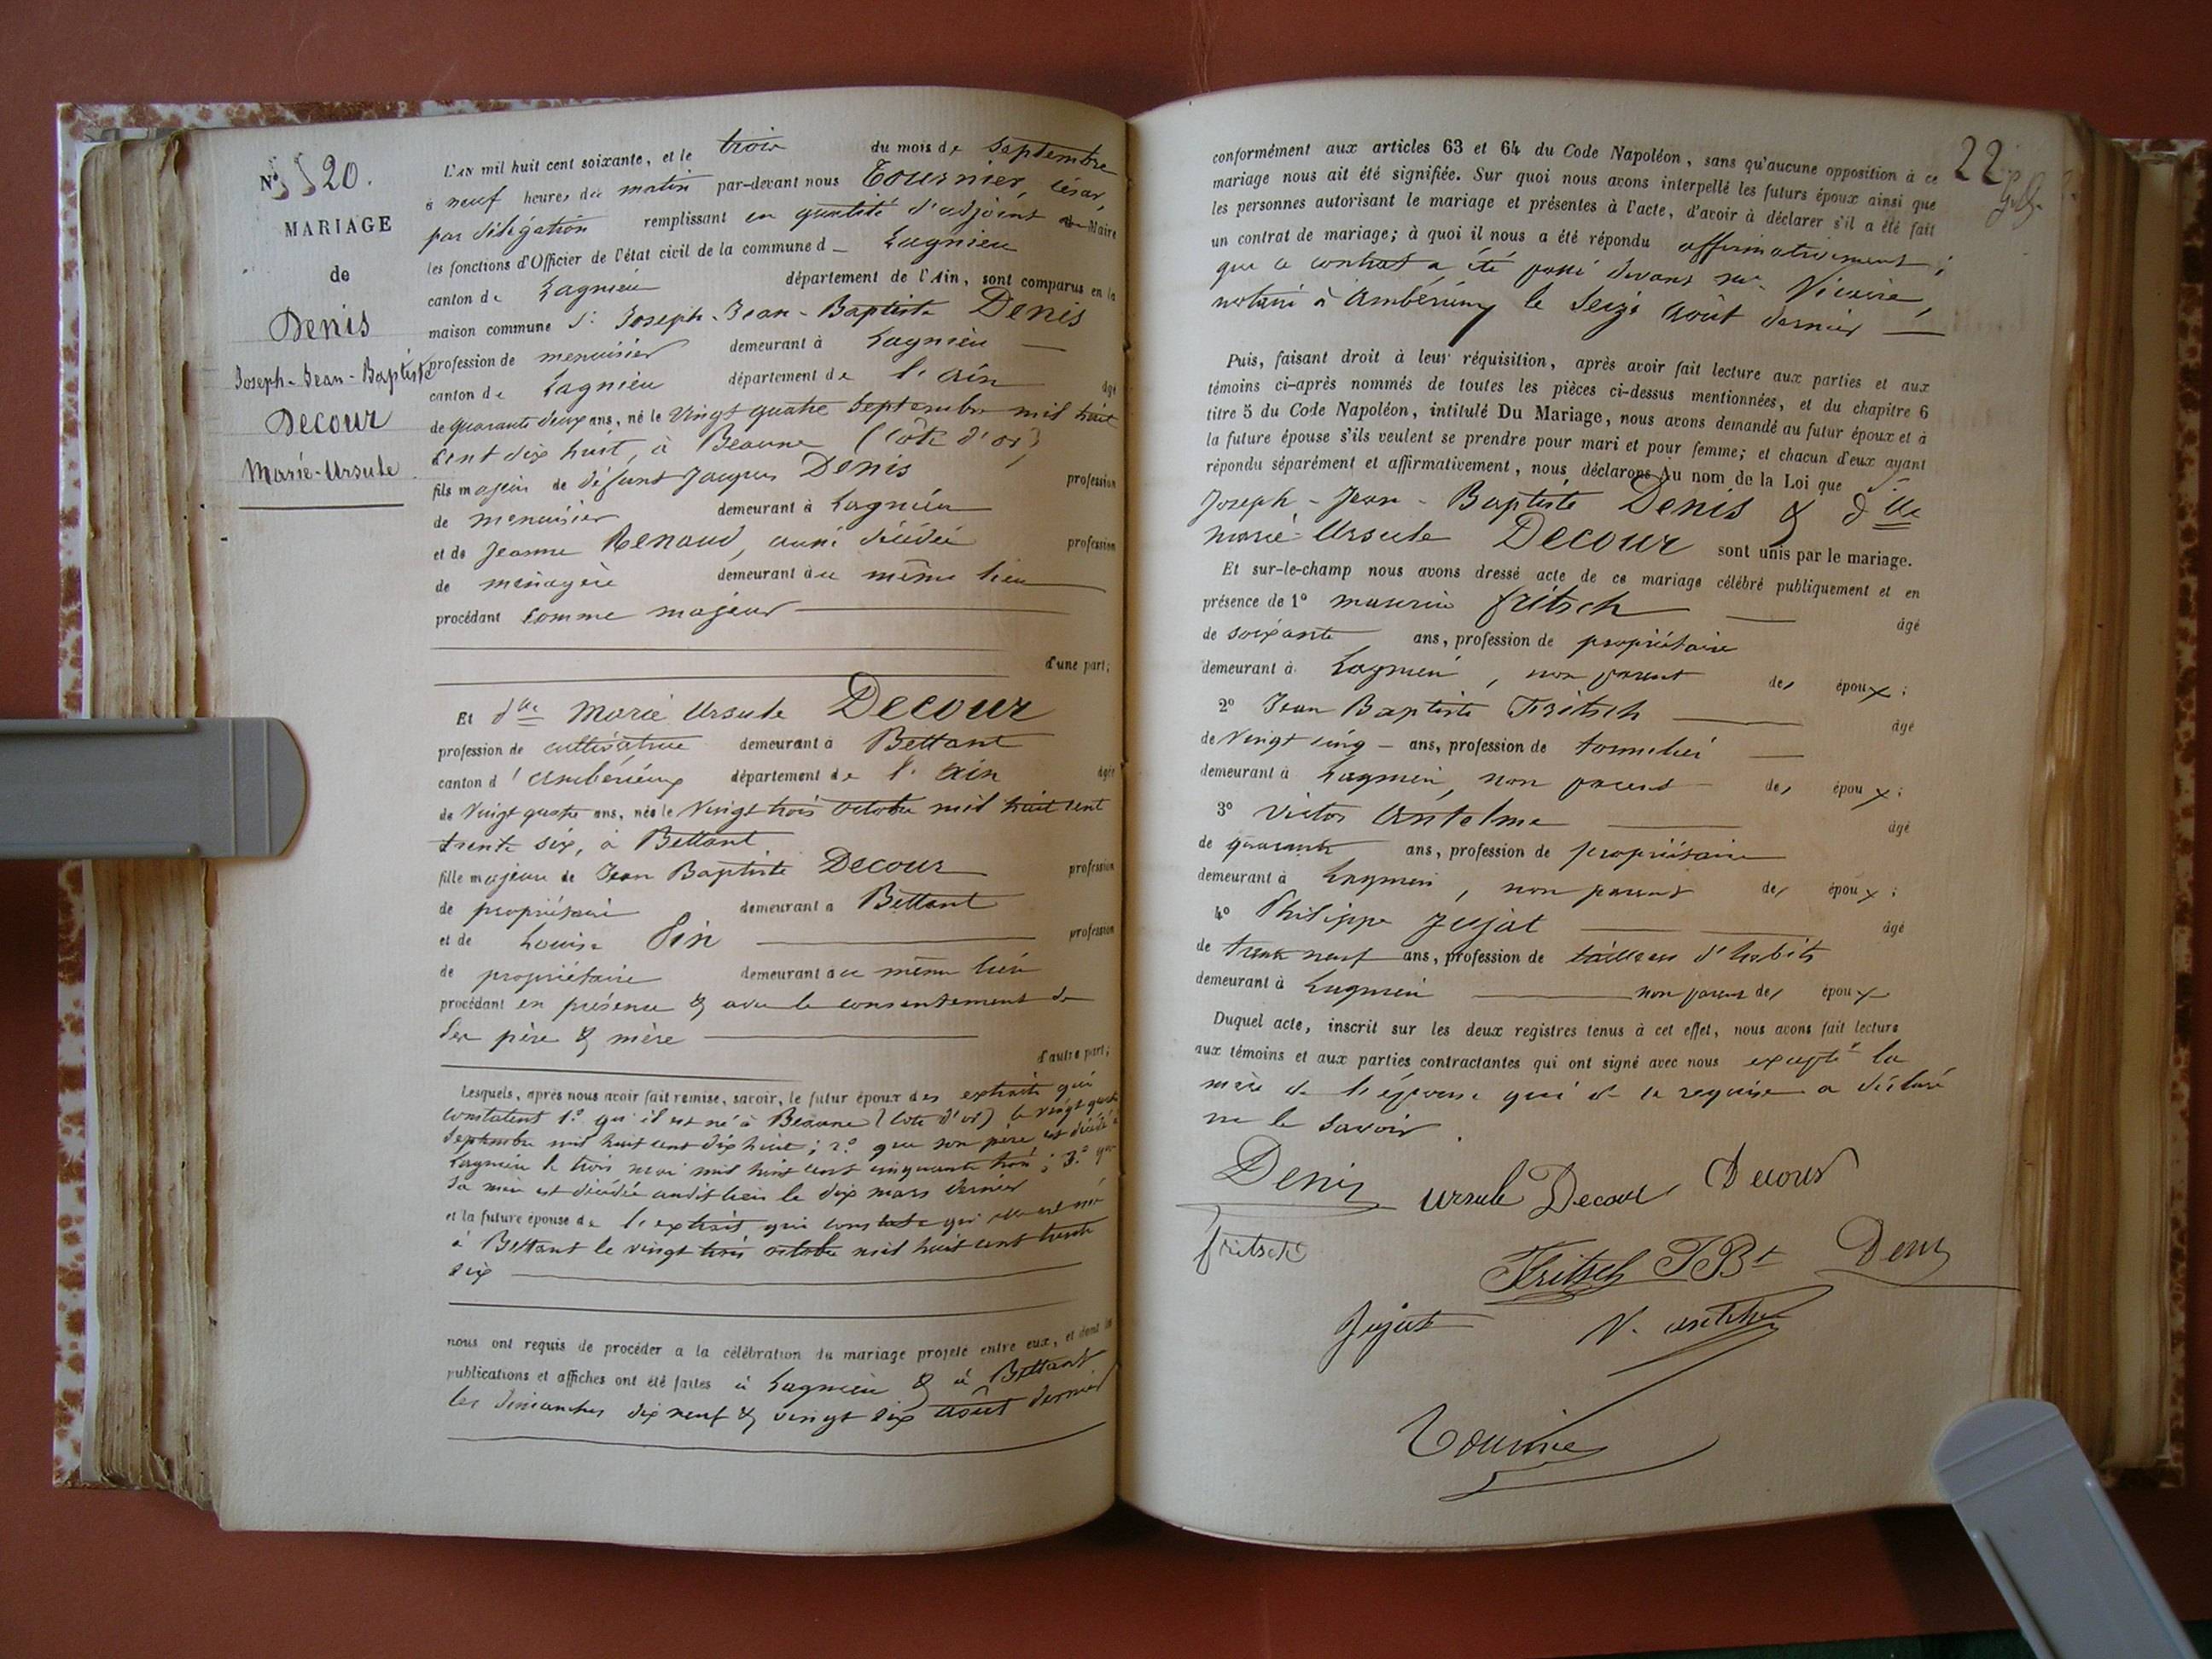 N° 20.
MARIAGE
de
Denis
Joseph-Jean-Baptiste
Decour
Marie-Ursule
L'AN mil huit cent soixante, et le trois du mois de septembre
à neuf heures du matin par-devant nous Tournier, César,
par délégation remplissant en qualité d'adjoint Maire
les fonctions d'Officier de l'état civil de la commune d Lagnieu
canton de Lagnieu département de l'Ain, sont comparus en la
maison commune Sr Joseph-Jean-Baptiste Denis
profession de menuisier demeurant à Lagnieu
canton de Lagnieu département de l'Ain âgé
de quarante deux ans, né le vingt quatre septembre mil huit
cent dix huit, à Beaune (Côte d'or)
fils majeur de défunt Jacques Denis profession
de menuisier demeurant à Lagnieu
et de Jeanne Renaud, aussi décédée profession
de ménagère demeurant au même lieu
procédant comme majeur
d'une part;
Et dlle Marie Ursule Decour
profession de cultivatrice demeurant à Bettant
canton d'Ambérieux département de l'Ain âgée
de vingt quatre ans, née le vingt trois octobre mil huit cent
trente six, à Bettant
fille majeure de Jean Baptiste Decour profession
de propriétaire demeurant à Bettant
et de Louise Pin profession
de propriétaire demeurant au même lieu
procédant en présence & avec le consentement de
ses père & mère
d'autre part;
Lesquels, après nous avoir fait remise, savoir, le futur époux des extraits qui
constatent 1° qu'il est né à Beaune (Côte d'or) le vingt quatre
septembre mil huit cent dix huit; 2° que son père est décédé à
Lagnieu le trois mai mil huit cent cinquante trois; 3° que
sa mère est décédée audit lieu le dix mars dernier
et la future épouse de l'extrait qui constate qu'elle est née
à Bettant le vingt trois octobre mil huit cent trente
six
nous ont requis de procéder à la célébration du mariage projeté entre eux, et dont les
publications et affiches ont été faites à Lagnieu & à Bettant
les dimanches dix neuf & vingt six août dernier
22
conformément aux articles 63 et 64 du Code Napoléon, sans qu'aucune opposition à ce
mariage nous ait été signifiée. Sur quoi nous avons interpellé les futurs époux ainsi que
les personnes autorisant le mariage et présentes à l'acte, d'avoir à déclarer s'il a été fait
un contrat de mariage; à quoi il nous a été répondu affirmativement;
que ce contrat a été passé devant me Vicaire,
notaire à Ambérieux le seize août dernier
Puis, faisant droit à leur réquisition, après avoir fait lecture aux parties et aux
témoins ci-après nommés de toutes les pièces ci-dessus mentionnées, et du chapitre 6
titre 5 du Code Napoléon, intitulé Du Mariage, nous avons demandé au futur époux et à
la future épouse s'ils veulent se prendre pour mari et pour femme; et chacun d'eux ayant
répondu séparément et affirmativement, nous déclarons Au nom de la Loi que Sr
Joseph-Jean-Baptiste Denis & dlle
Marie-Ursule Decour sont unis par le mariage.
Et sur-le-champ nous avons dressé acte de ce mariage célébré publiquement et en
présence de 1° fritsch âgé
de soixante ans, profession de propriétaire
demeurant à Lagnieu, non parent des époux;
2° Jean Baptiste Fritsch âgé
de vingt cinq ans, profession de tonnelier
demeurant à Lagnieu, non parent des époux;
3° Victor Antelme âgé
de quarante ans, profession de propriétaire
demeurant à Lagnieu, non parent des époux;
4° Philippe Jujat âgé
de trente neuf ans, profession de tailleur d'habits
demeurant à Lagnieu non parent des époux
Duquel acte, inscrit sur les deux registres tenus à cet effet, nous avons fait lecture
aux témoins et aux parties contractantes qui ont signé avec nous excepté la
mère de l'épouse qui de ce requise a déclaré
ne le savoir.
Denis Ursule Decour Decour
fritsch Fritsch JBt Denis
Jujat V. antelme
Tournier